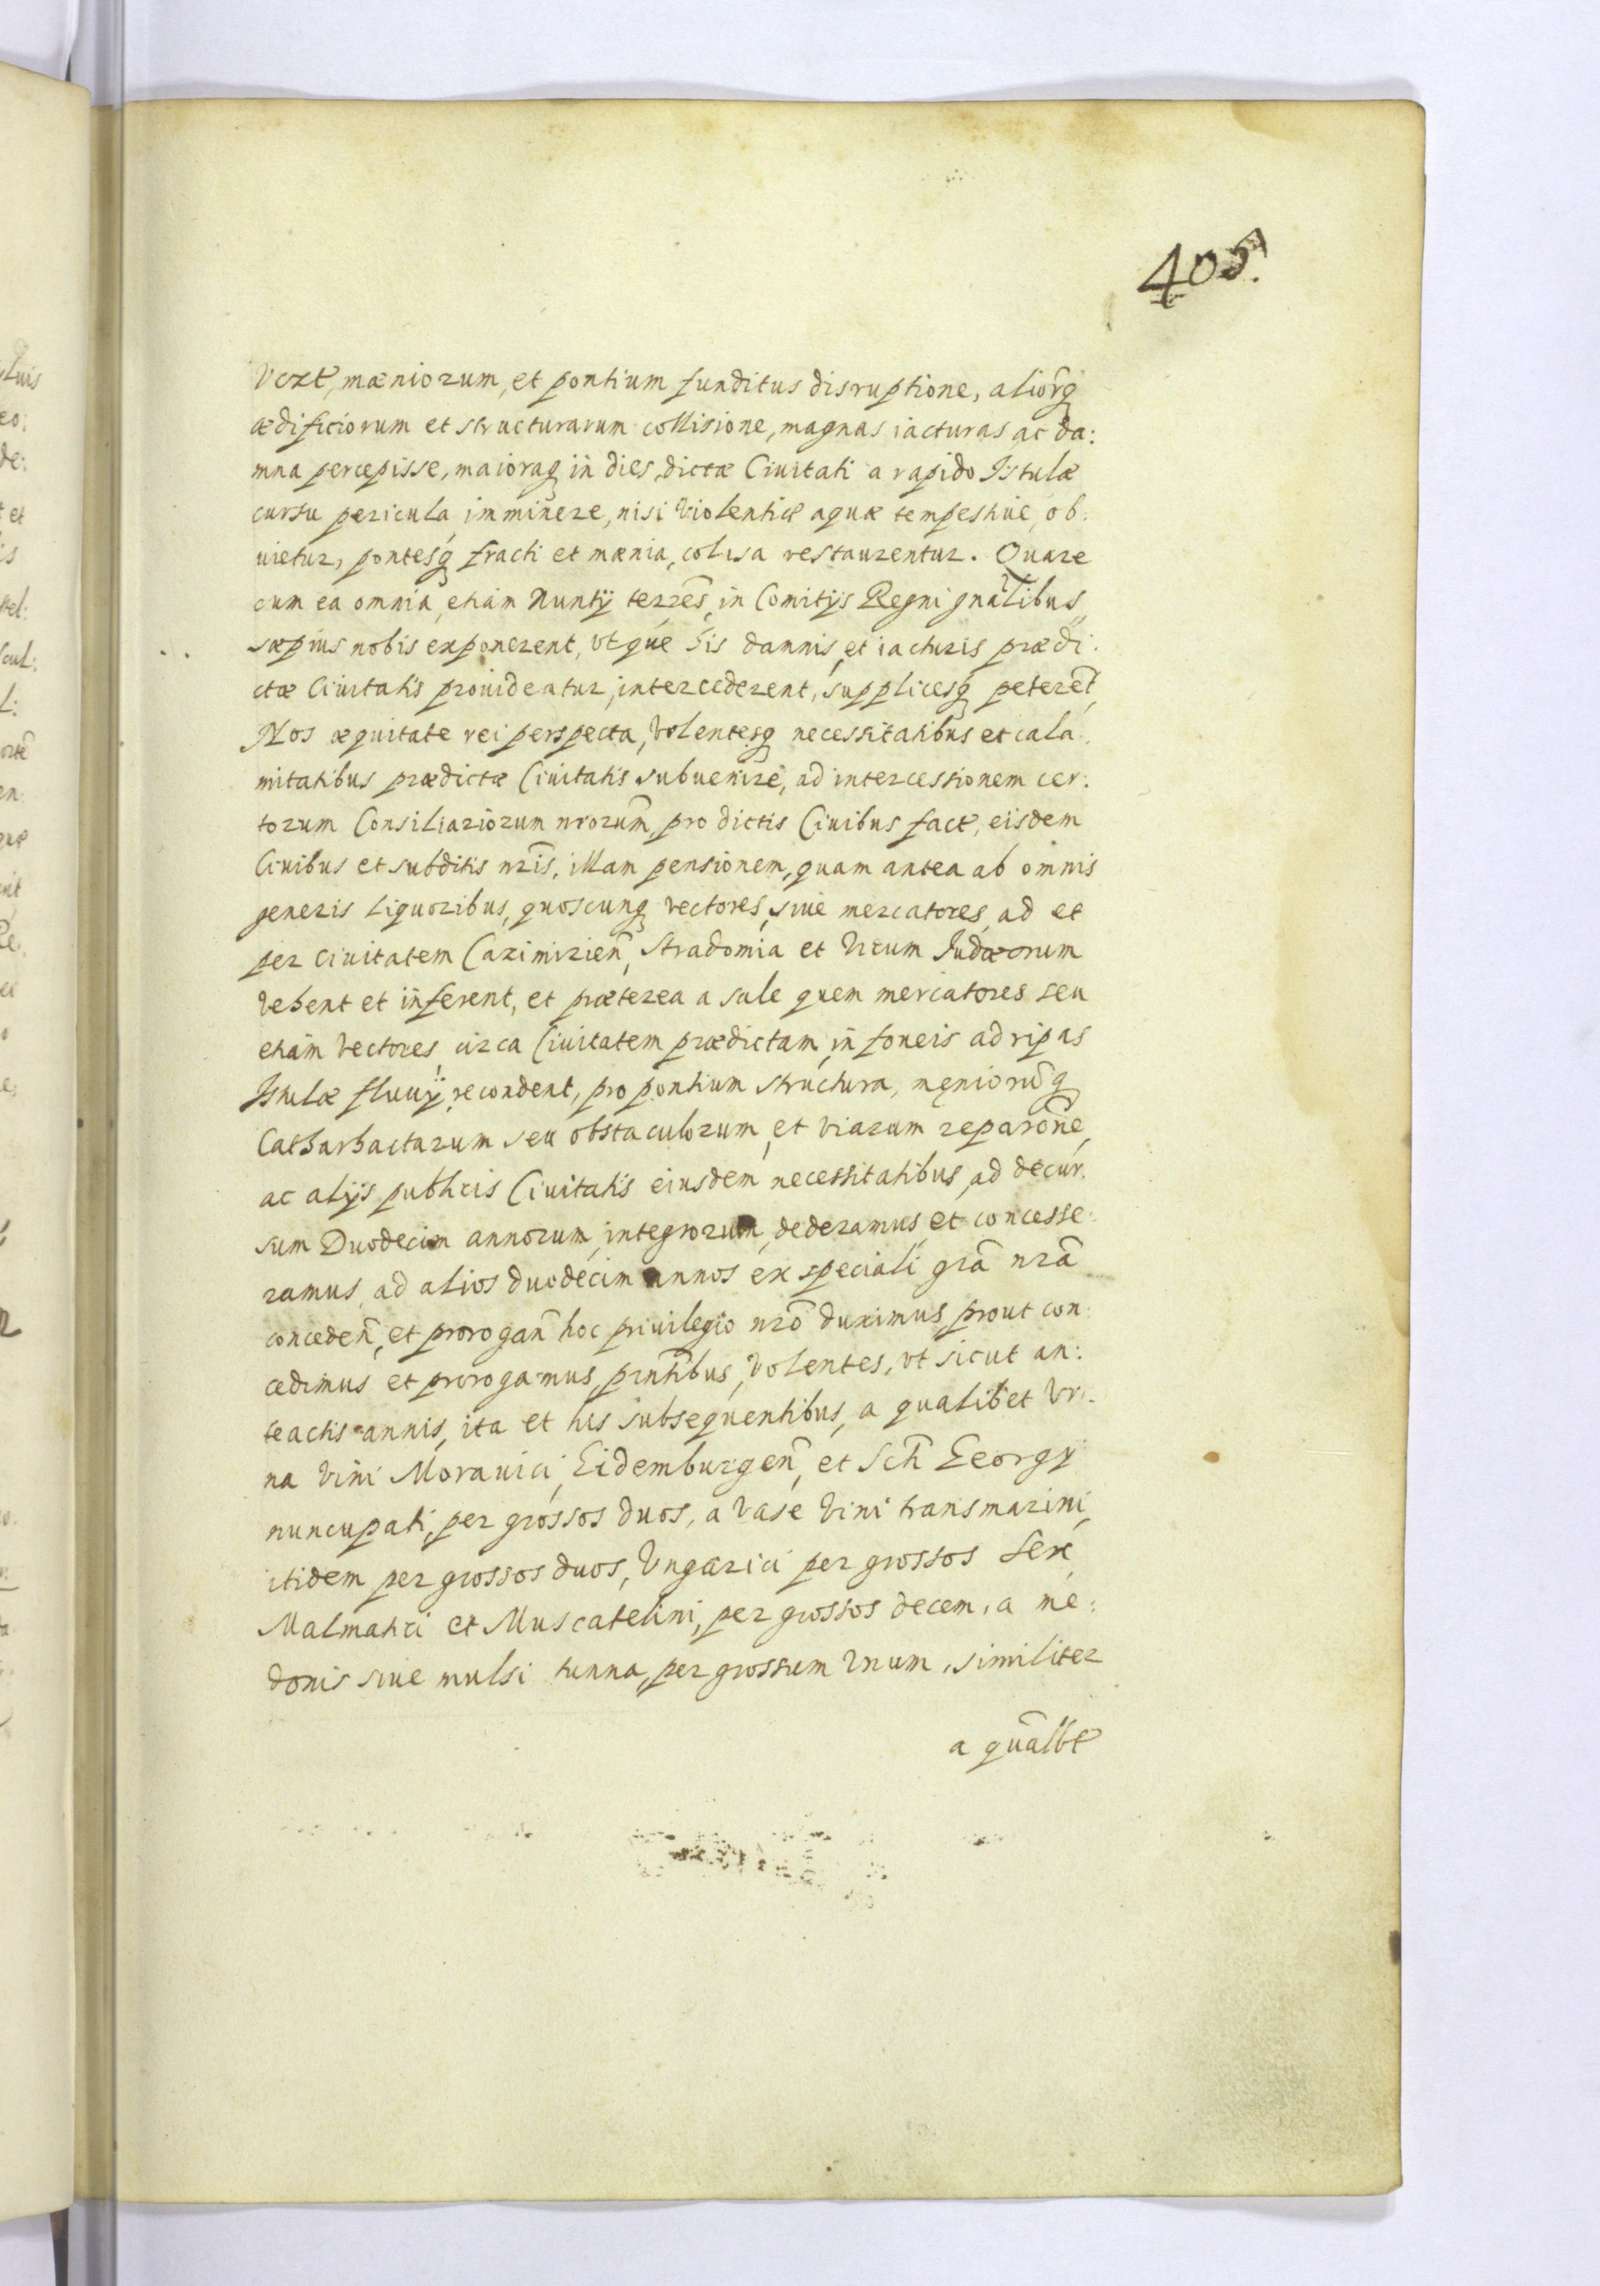 405.
mæniorum, et pontium funditus disruptione, aliorq̃
ædificiorum et structurarum collisione, magnas iacturas ac da:
mna percepisse, maioraq in dies, dictæ Ciuitati a rapido Istulæ
cursu pericula imminere, nisi violentiæ aquæ tempestiue, ob.
uietur, pontesq̃ fracti et mænia, colisa restaurentur. Quare
cum ea omnia, etiam Nuntÿ terrẽs, in Comitÿs Regni gñalibus
sæpius nobis exponerent, vt que his damnis, et iacturis prædi.
ctæ Ciuitatis prouideatur, intercederent, supplicesq̃ peterẽt,
Nos æquitate rei perspecta, Volentesq necessitatibus et cala.
mitatibus prædictæ Ciuitatis subuenire, ad intercessionem cer.
torum Consiliariorum nrorũm, pro dictis Ciuibus fact, eisdem
Ciuibus et subditis nr̃is, illam pensionem, quam antea ab omnis
generis liquoribus, quoscunq vectores, siue mercatores, ad et
per ciuitatem Cazimirieñ, Stradomia et Vicum Iudæorum
vehent et inferent, et præterea a sale quem mercatores seu
etiam vectores, circa Ciuitatem prædictam, in foueis ad ripas
Istulæ fluuÿ, recondent, pro pontium structura, męniorũq
Catharhactarum seu obstaculorum, et viarum reparõne,
ac alÿs publicis Ciuitatis eiusdem necessitatibus, ad decur.
sum Duodecim annorum, integrorum, dederamus, et concesse.
ramus, ad alios duodecim annos ex speciali grã nrã
concedeñ, et prorogañ hoc priuilegio nrõ duximus prout con.
cedimus et prorogamus, prñtibus, Volentes, vt sicut an:
teactis annis, ita et his subsequentibus, a qualibet Vr.
na Vini Morauici, Eidemburgeñ, et Sctĩ Georgÿ
nuncupati, per grossos duos, a Vase Vini transmarini,
itidem per grossos duos, Vngarici per grossos sex
Malmatici et Muscatelini, per grossos decem, a me:
donis siue mulsi tunna, per grossum Vnum, similiter
a quãlbt